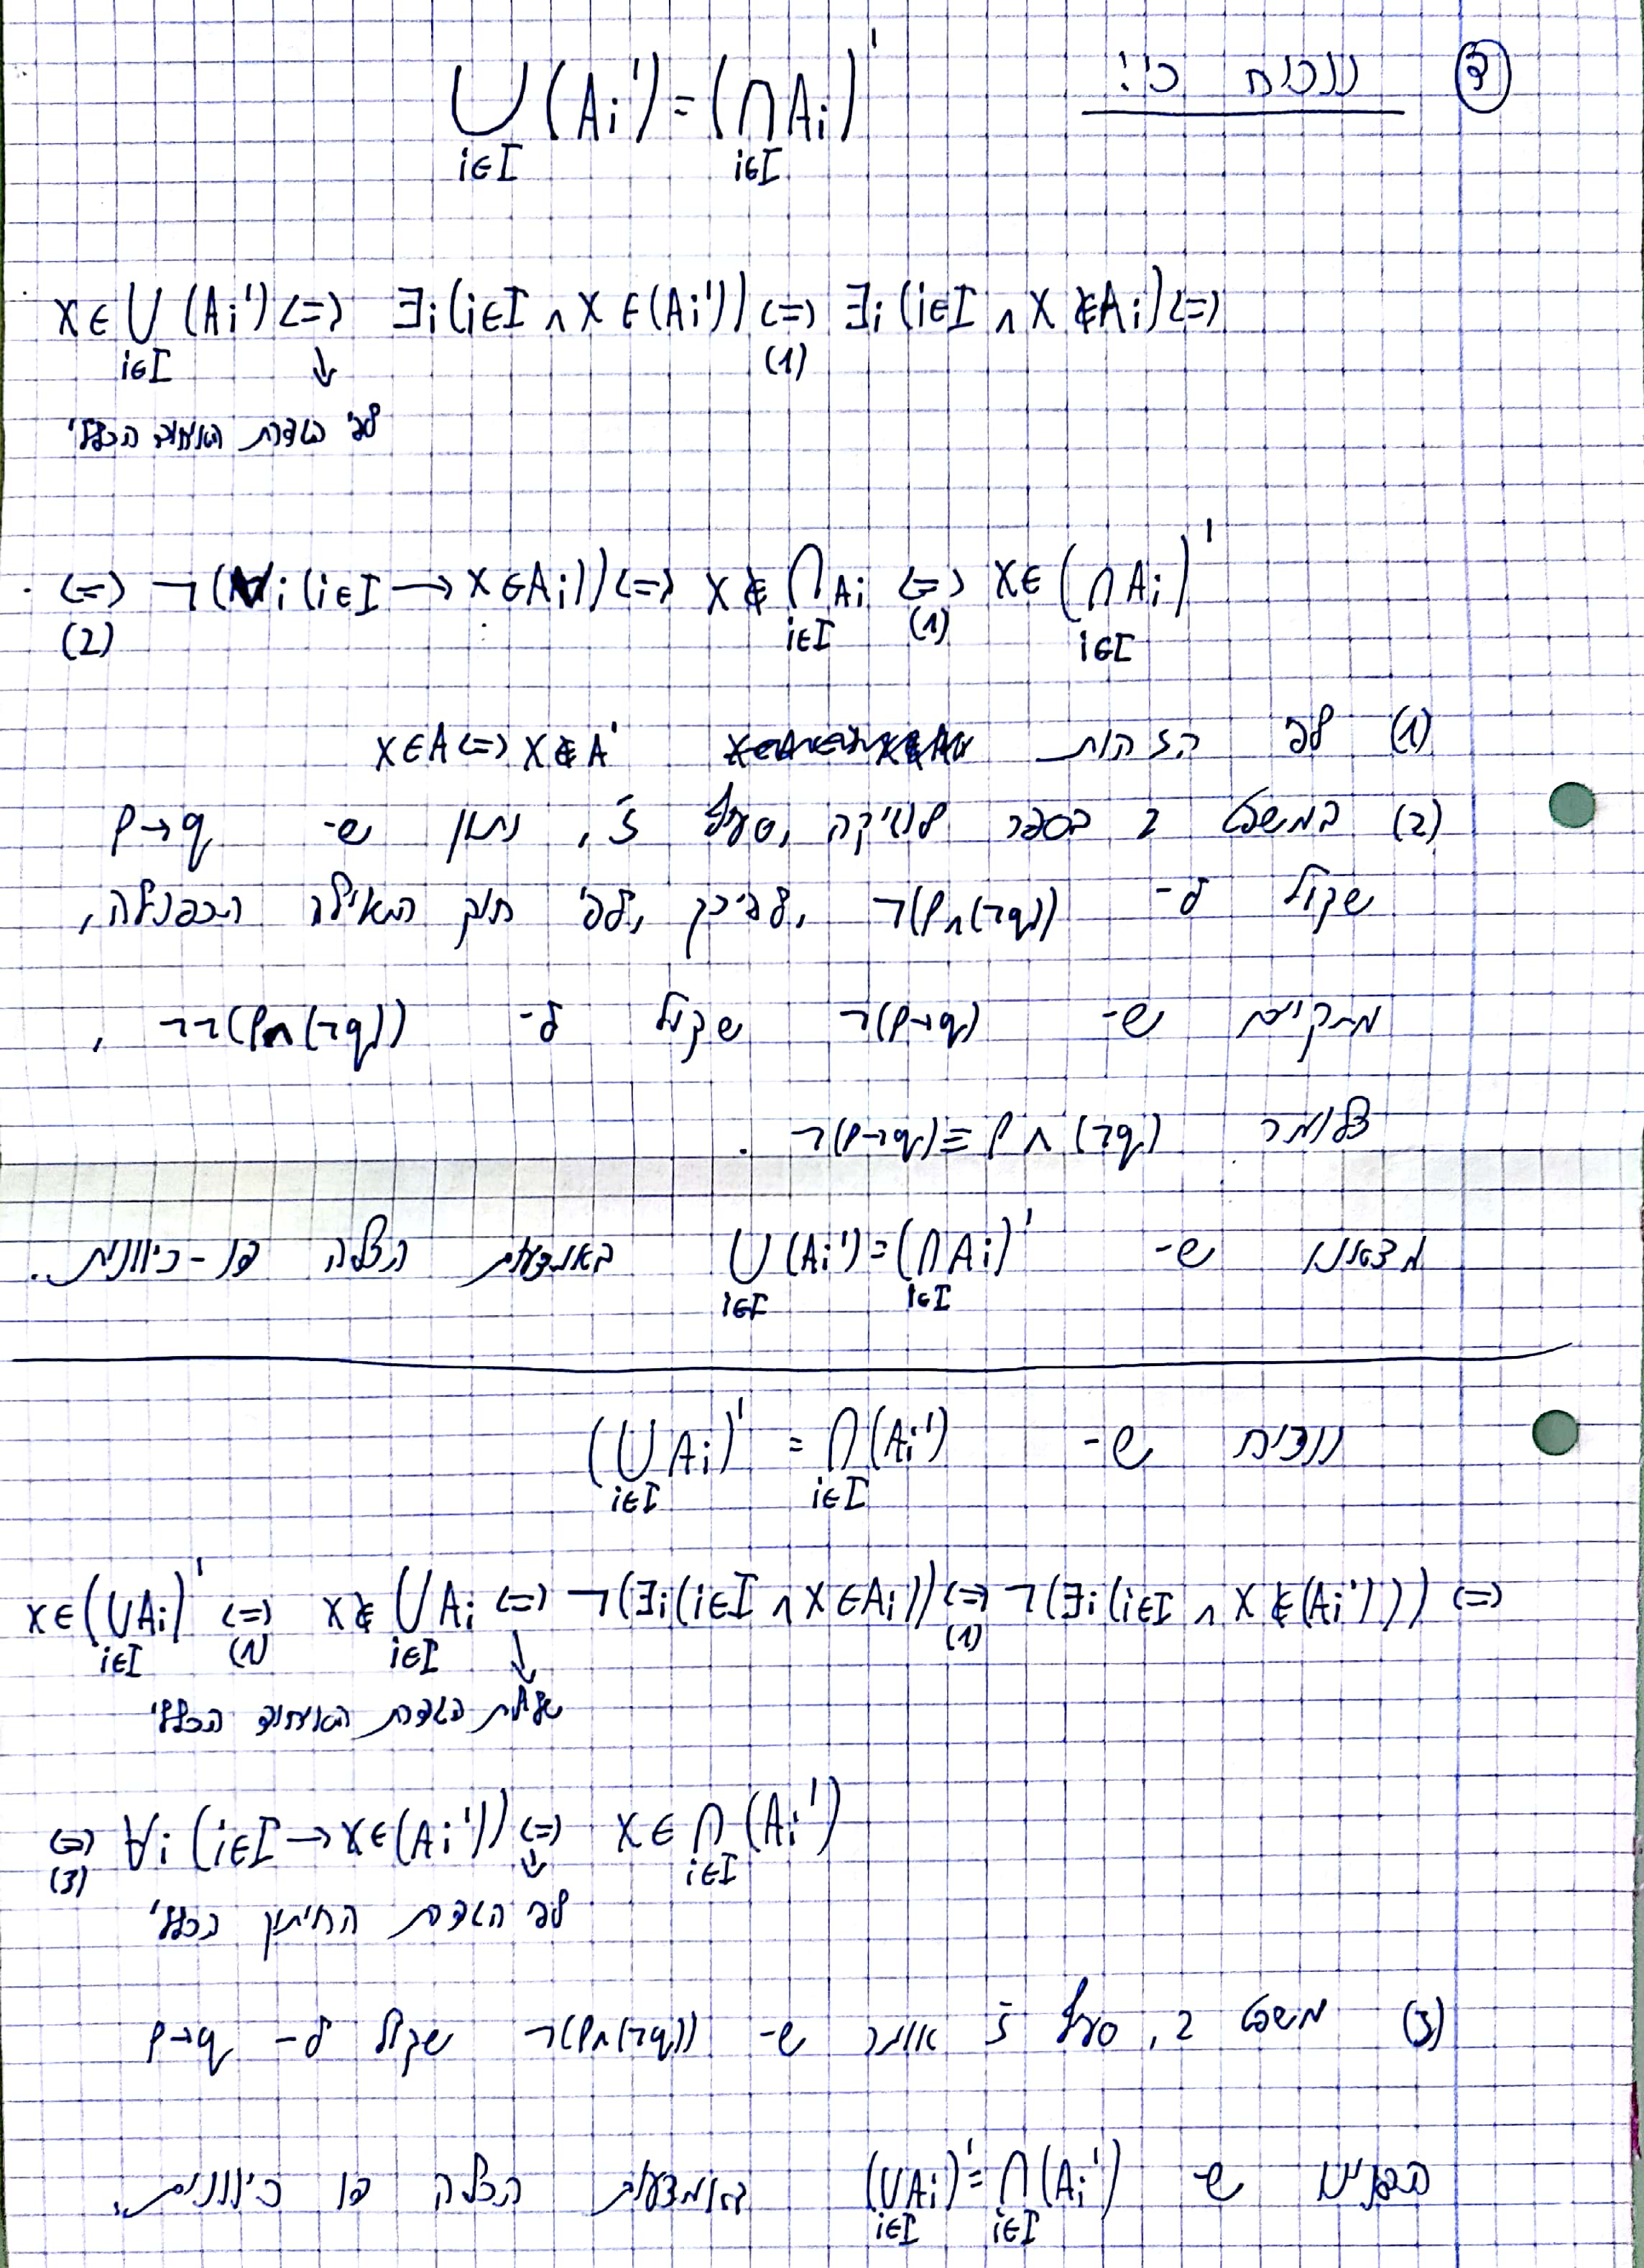 ד נוכיח כי: ⋃_{i∈I} (Ai') = (⋂_{i∈I} Ai)'
x∈ ⋃_{i∈I} (Ai') <=> ∃i (i∈I ∧ x∈(Ai')) <=>_{(1)} ∃i (i∈I ∧ x∉Ai) <=>
↓ לפי הגדרת האיחוד הכללי
<=>_{(2)} ¬(∀i (i∈I → x∈Ai)) <=> x∉ ⋂_{i∈I} Ai <=>_{(1)} x∈ (⋂_{i∈I} Ai)'
(1) לפי הזהות x∈A <=> x∉A'
(2) במשפט 2 בספר לוגיקה, סעיף ז', נתון ש- p→q
שקול ל- ¬(p∧(¬q)), לפיכך, לפי חוק השלילה הכפולה,
מתקיים ש- ¬(p→q) שקול ל- ¬¬(p∧(¬q)),
כלומר ¬(p→q) ≡ p∧(¬q).
מצאנו ש- ⋃_{i∈I} (Ai') = (⋂_{i∈I} Ai)' באמצעות הכלה דו-כיוונית.
נוכיח ש- (⋃_{i∈I} Ai)' = ⋂_{i∈I} (Ai')
x∈ (⋃_{i∈I} Ai)' <=>_{(1)} x∉ ⋃_{i∈I} Ai <=> ¬(∃i (i∈I ∧ x∈Ai)) <=>_{(1)} ¬(∃i (i∈I ∧ x∉(Ai'))) <=>
↓ שלילת הגדרת האיחוד הכללי
<=>_{(3)} ∀i (i∈I → x∈(Ai')) <=> x∈ ⋂_{i∈I} (Ai')
↓ לפי הגדרת החיתוך הכללי
(3) משפט 2, סעיף ז' אומר ש- ¬(p∧(¬q)) שקול ל- p→q
ש- (⋃_{i∈I} Ai)' = ⋂_{i∈I} (Ai') באמצעות הכלה דו כיוונית.